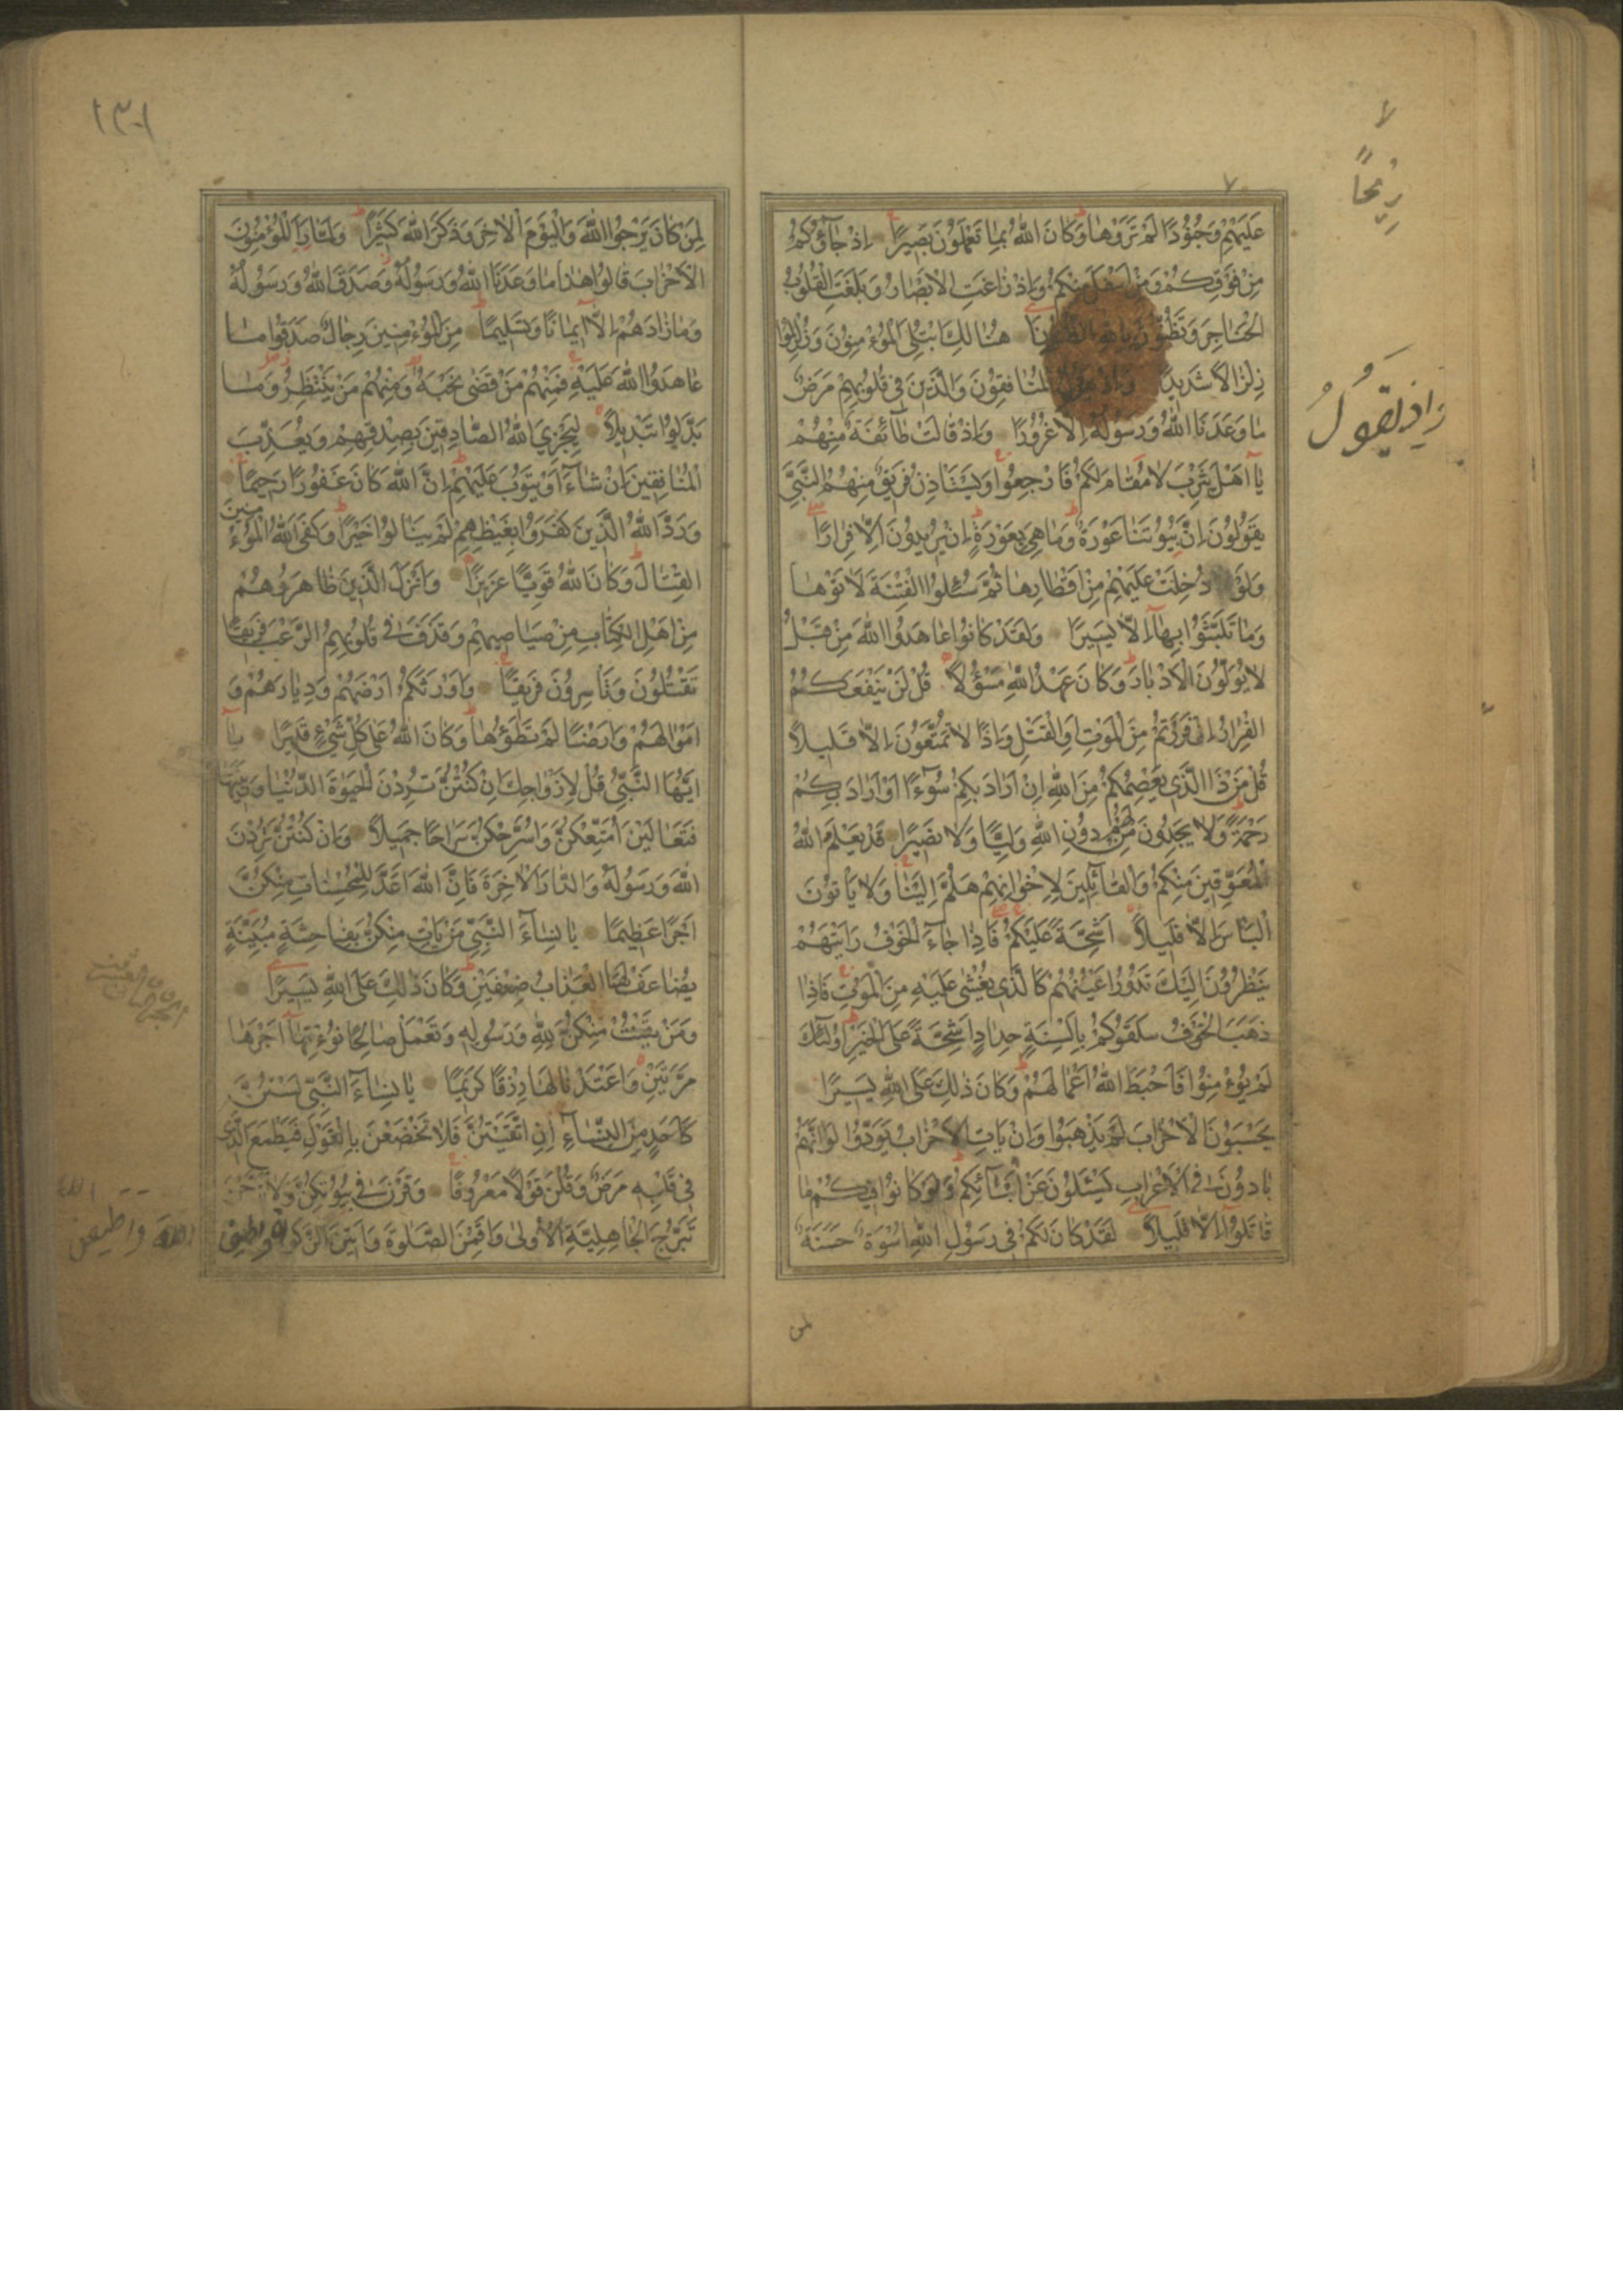 عَلَيْهِمْ وَجُنُودًا لَمْ تَرَوْهَا وَكَانَ اللّٰهُ بِمَا تَعْمَلُونَ بَصِيرًا اِذْ جَاؤُكُمْ
مِنْ فَوْقِكُمْ وَمِنْ اَسْفَلَ مِنْكُمْ وَاِذْ زَاغَتِ الْاَبْصَارُ وَبَلَغَتِ الْقُلُوبُ
الْحَنَاجِرَ وَتَظُنُّونَ بِاللّٰهِ الظُّنُونَا هُنَالِكَ ابْتُلِىَ الْمُؤْمِنُونَ وَزُلْزِلُوا
زِلْزَالًا شَدِيدًا وَاِذْ يَقُولُ الْمُنَافِقُونَ وَالَّذِينَ فِي قُلُوبِهِمْ مَرَضٌ
مَا وَعَدَنَا اللّٰهُ وَرَسُولُهُ اِلَّا غُرُورًا وَاِذْ قَالَتْ طَآئِفَةٌ مِنْهُمْ
يَآ اَهْلَ يَثْرِبَ لَا مُقَامَ لَكُمْ فَارْجِعُوا وَيَسْتَاْذِنُ فَرِيقٌ مِنْهُمُ النَّبِيَّ
يَقُولُونَ اِنَّ بُيُوتَنَا عَوْرَةٌ وَمَا هِيَ بِعَوْرَةٍ اِنْ يُرِيدُونَ اِلَّا فِرَارًا
وَلَوْ دُخِلَتْ عَلَيْهِمْ مِنْ اَقْطَارِهَا ثُمَّ سُئِلُوا الْفِتْنَةَ لَاٰتَوْهَا
وَمَا تَلَبَّثُوا بِهَآ اِلَّا يَسِيرًا وَلَقَدْ كَانُوا عَاهَدُوا اللّٰهَ مِنْ قَبْلُ
لَا يُوَلُّونَ الْاَدْبَارَ وَكَانَ عَهْدُ اللّٰهِ مَسْؤُلًا قُلْ لَنْ يَنْفَعَكُمُ
الْفِرَارُ اِنْ فَرَرْتُمْ مِنَ الْمَوْتِ اَوِ الْقَتْلِ وَاِذًا لَا تُمَتَّعُونَ اِلَّا قَلِيلًا
قُلْ مَنْ ذَا الَّذِي يَعْصِمُكُمْ مِنَ اللّٰهِ اِنْ اَرَادَ بِكُمْ سُوٓءًا اَوْ اَرَادَ بِكُمْ
رَحْمَةً وَلَا يَجِدُونَ لَهُمْ مِنْ دُونِ اللّٰهِ وَلِيًّا وَلَا نَصِيرًا قَدْ يَعْلَمُ اللّٰهُ
الْمُعَوِّقِينَ مِنْكُمْ وَالْقَآئِلِينَ لِاِخْوَانِهِمْ هَلُمَّ اِلَيْنَا وَلَا يَاْتُونَ
الْبَاْسَ اِلَّا قَلِيلًا اَشِحَّةً عَلَيْكُمْ فَاِذَا جَآءَ الْخَوْفُ رَاَيْتَهُمْ
يَنْظُرُونَ اِلَيْكَ تَدُورُ اَعْيُنُهُمْ كَالَّذِي يُغْشٰى عَلَيْهِ مِنَ الْمَوْتِ فَاِذَا
ذَهَبَ الْخَوْفُ سَلَقُوكُمْ بِاَلْسِنَةٍ حِدَادٍ اَشِحَّةً عَلَى الْخَيْرِ اُولٰٓئِكَ
لَمْ يُؤْمِنُوا فَاَحْبَطَ اللّٰهُ اَعْمَالَهُمْ وَكَانَ ذٰلِكَ عَلَى اللّٰهِ يَسِيرًا
يَحْسَبُونَ الْاَحْزَابَ لَمْ يَذْهَبُوا وَاِنْ يَاْتِ الْاَحْزَابُ يَوَدُّوا لَوْ اَنَّهُمْ
بَادُونَ فِي الْاَعْرَابِ يَسْئَلُونَ عَنْ اَنْبَآئِكُمْ وَلَوْ كَانُوا فِيكُمْ مَا
قَاتَلُوا اِلَّا قَلِيلًا لَقَدْ كَانَ لَكُمْ فِي رَسُولِ اللّٰهِ اُسْوَةٌ حَسَنَةٌ
لمن
رِيْحًا
وَاِذْ يَقُولُ
١٣٠١
لِمَنْ كَانَ يَرْجُوا اللّٰهَ وَالْيَوْمَ الْاٰخِرَ وَذَكَرَ اللّٰهَ كَثِيرًا وَلَمَّا رَاَ الْمُؤْمِنُونَ
الْاَحْزَابَ قَالُوا هٰذَا مَا وَعَدَنَا اللّٰهُ وَرَسُولُهُ وَصَدَقَ اللّٰهُ وَرَسُولُهُ
وَمَا زَادَهُمْ اِلَّآ اِيمَانًا وَتَسْلِيمًا مِنَ الْمُؤْمِنِينَ رِجَالٌ صَدَقُوا مَا
عَاهَدُوا اللّٰهَ عَلَيْهِ فَمِنْهُمْ مَنْ قَضٰى نَحْبَهُ وَمِنْهُمْ مَنْ يَنْتَظِرُ وَمَا
بَدَّلُوا تَبْدِيلًا لِيَجْزِيَ اللّٰهُ الصَّادِقِينَ بِصِدْقِهِمْ وَيُعَذِّبَ
الْمُنَافِقِينَ اِنْ شَآءَ اَوْ يَتُوبَ عَلَيْهِمْ اِنَّ اللّٰهَ كَانَ غَفُورًا رَحِيمًا
وَرَدَّ اللّٰهُ الَّذِينَ كَفَرُوا بِغَيْظِهِمْ لَمْ يَنَالُوا خَيْرًا وَكَفَى اللّٰهُ الْمُؤْمِنِينَ
الْقِتَالَ وَكَانَ اللّٰهُ قَوِيًّا عَزِيزًا وَاَنْزَلَ الَّذِينَ ظَاهَرُوهُمْ
مِنْ اَهْلِ الْكِتَابِ مِنْ صَيَاصِيهِمْ وَقَذَفَ فِي قُلُوبِهِمُ الرُّعْبَ فَرِيقًا
تَقْتُلُونَ وَتَاْسِرُونَ فَرِيقًا وَاَوْرَثَكُمْ اَرْضَهُمْ وَدِيَارَهُمْ وَ
اَمْوَالَهُمْ وَاَرْضًا لَمْ تَطَؤُهَا وَكَانَ اللّٰهُ عَلٰى كُلِّ شَيْءٍ قَدِيرًا يَآ
اَيُّهَا النَّبِيُّ قُلْ لِاَزْوَاجِكَ اِنْ كُنْتُنَّ تُرِدْنَ الْحَيٰوةَ الدُّنْيَا وَزِينَتَهَا
فَتَعَالَيْنَ اُمَتِّعْكُنَّ وَاُسَرِّحْكُنَّ سَرَاحًا جَمِيلًا وَاِنْ كُنْتُنَّ تُرِدْنَ
اللّٰهَ وَرَسُولَهُ وَالدَّارَ الْاٰخِرَةَ فَاِنَّ اللّٰهَ اَعَدَّ لِلْمُحْسِنَاتِ مِنْكُنَّ
اَجْرًا عَظِيمًا يَا نِسَآءَ النَّبِيِّ مَنْ يَاْتِ مِنْكُنَّ بِفَاحِشَةٍ مُبَيِّنَةٍ
يُضَاعَفْ لَهَا الْعَذَابُ ضِعْفَيْنِ وَكَانَ ذٰلِكَ عَلَى اللّٰهِ يَسِيرًا
وَمَنْ يَقْنُتْ مِنْكُنَّ لِلّٰهِ وَرَسُولِهِ وَتَعْمَلْ صَالِحًا نُؤْتِهَآ اَجْرَهَا
مَرَّتَيْنِ وَاَعْتَدْنَا لَهَا رِزْقًا كَرِيمًا يَا نِسَآءَ النَّبِيِّ لَسْتُنَّ
كَاَحَدٍ مِنَ النِّسَآءِ اِنِ اتَّقَيْتُنَّ فَلَا تَخْضَعْنَ بِالْقَوْلِ فَيَطْمَعَ الَّذِي
فِي قَلْبِهِ مَرَضٌ وَقُلْنَ قَوْلًا مَعْرُوفًا وَقَرْنَ فِي بُيُوتِكُنَّ وَلَا تَبَرَّجْنَ
تَبَرُّجَ الْجَاهِلِيَّةِ الْاُولٰى وَاَقِمْنَ الصَّلٰوةَ وَاٰتِينَ الزَّكٰوةَ وَاَطِعْنَ